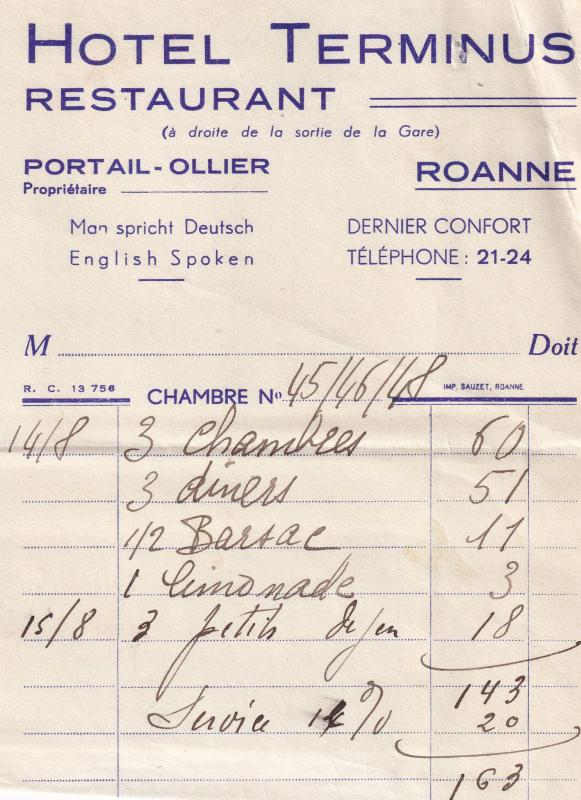 HOTEL TERMINUS
RESTAURANT
(à droite de la sortie de la Gare)
PORTAIL-OLLIER
Propriétaire
ROANNE
Man spricht Deutsch
English Spoken
DERNIER CONFORT
TÉLÉPHONE : 21-24
M Doit
R. C. 13 756
CHAMBRE No 45/46/48
IMP. SAUZET, ROANNE
14/8 3 chambres 60
3 diners 51
1/2 Barsac 11
1 limonade 3
15/8 3 petits dejen 18
143
Service % 20
163